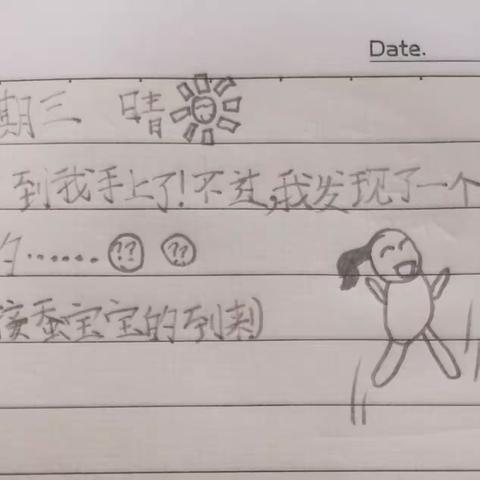 Date.
期三 晴
到我手上了!不过,我发现了一个
的……?? ??
接蚕宝宝的到来)